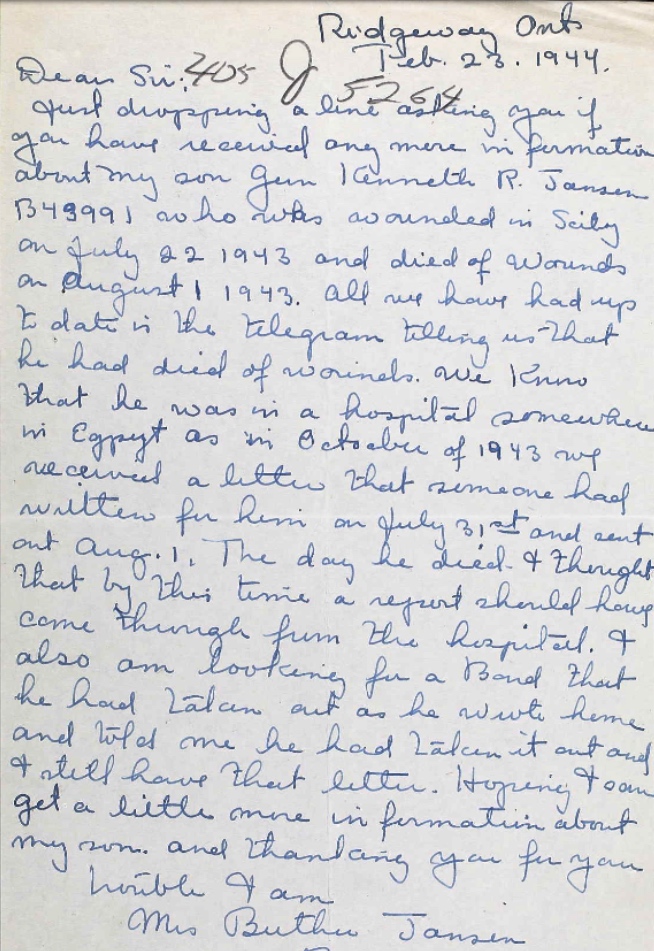 Ridgeway Ont
Feb. 23. 1944.
Dear Sir: 405 J 5264
Just dropping a line asking you if
you have received any more in formation
about my son Gun Kenneth R. Jansen
B49991 who was wounded in Scily
on July 22 1943 and died of wounds
on August 1 1943. All we have had up
to date is the telegram telling us that
he had died of wounds. We Know
that he was in a hospital somewhere
in Egpyt as in October of 1943 we
received a letter that someone had
written for him on July 31st and sent
out Aug. 1. The day he died. I thought
that by this time a report should have
come through from the hospital. I
also am looking for a Bond that
he had taken out as he wrote home
and told me he had taken it out and
I still have that letter. Hoping I can
get a little more in formation about
my son. and thanking you for you
trouble I am
Mrs Jansen